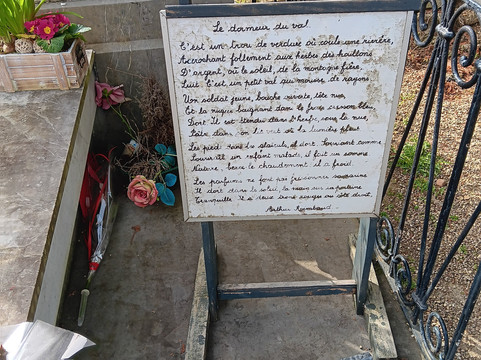 Le dormeur du val.
C'est un trou de verdure où coule une rivière,
Accrochant follement aux herbes des haillons
D'argent, où le soleil, de la montagne fière,
Luit. C'est un petit val qui mousse de rayons.
Un soldat jeune, bouche ouverte, tête nue
Et la nuque baignant dans le frais cresson bleu,
Dort. Il est étendu dans l'herbe, sous la nue,
Pâle dans son lit vert où la lumière pleut.
Les pieds dans les glaïeuls, il dort. Souriant comme
Sourirait un enfant malade, il fait un somme
Nature, berce-le chaudement il a froid.
Les parfums ne font pas frissonner sa narine
Il dort dans le soleil, la main sur sa poitrine
Tranquille. Il a deux trous rouges au côté droit.
Arthur Rimbaud